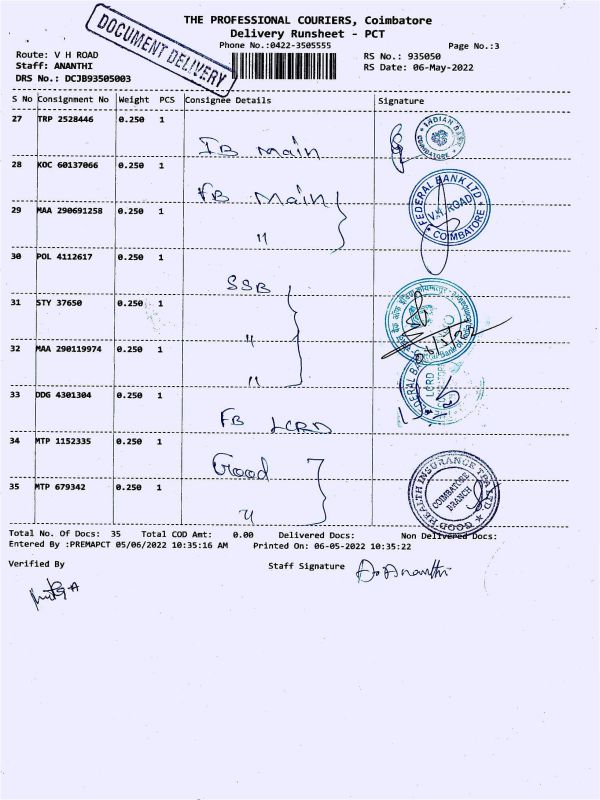 THE PROFESSIONAL COURIERS, Coimbatore
Delivery Runsheet - PCT
DOCUMENT DELIVERY
Phone No.:0422-3505555 Page No.:3
Route: V H ROAD RS No.: 935050
Staff: ANANTHI RS Date: 06-May-2022
DRS No.: DCJB93505003
S No Consignment No Weight PCS Consignee Details Signature
27 TRP 2528446 0.250 1
IB main
INDIAN BANK
COIMBATORE
28 KOC 60137066 0.250 1
FB Main
FEDERAL BANK LTD
V.H. ROAD
COIMBATORE
29 MAA 290691258 0.250 1
"
30 POL 4112617 0.250 1
SSB
31 STY 37650 0.250 1
"
32 MAA 290119974 0.250 1
"
33 DDG 4301304 0.250 1
FB LCRD
LCRD
34 MTP 1152335 0.250 1
Good
GOOD HEALTH INSURANCE TPA LTD
COIMBATORE
BRANCH
35 MTP 679342 0.250 1
"
Total No. Of Docs: 35 Total COD Amt: 0.00 Delivered Docs: Non Delivered Docs:
Entered By :PREMAPCT 05/06/2022 10:35:16 AM Printed On: 06-05-2022 10:35:22
Verified By Staff Signature A. Ananthi